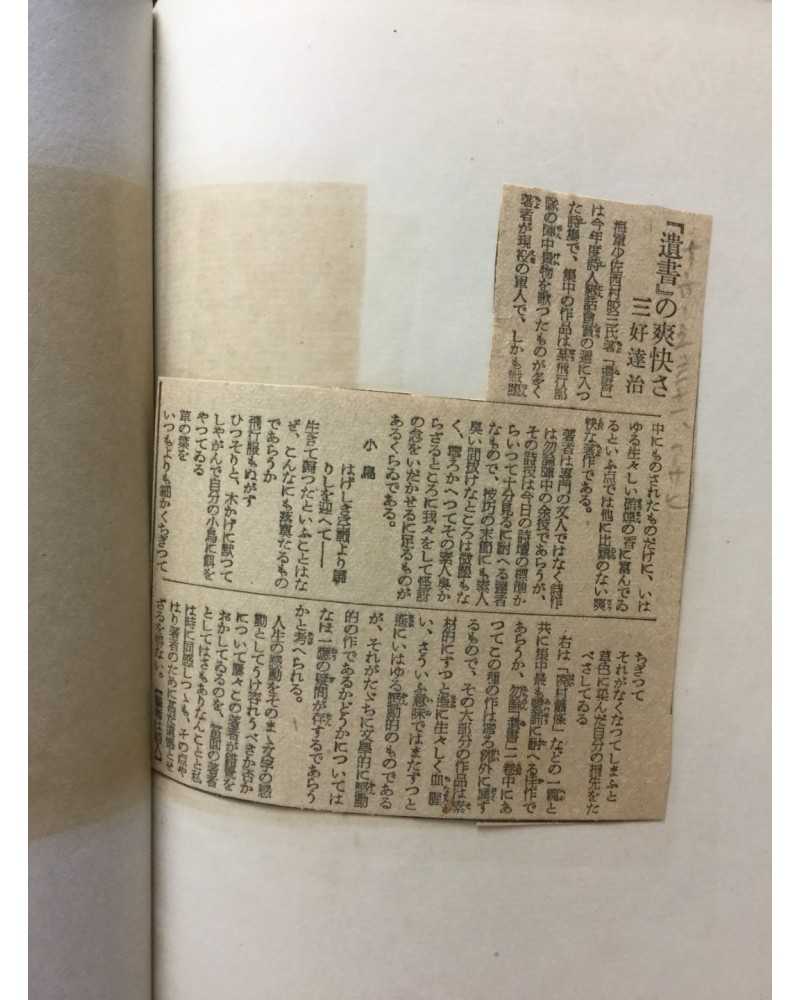 『遺書』の爽快さ
三好達治
海軍少佐西村皎三氏著「遺書」
は今年度詩人懇話会賞の選に入つ
た詩集で、集中の作品は某飛行部
隊の陣中景物を歌つたものが多く
著者が現役の軍人で、しかも
中にものされたものだけに、いは
ゆる生々しい硝煙の香に富んでゐ
るといふ点では他に出類のない爽
快な著作である。
著者は専門の文人ではなく詩作
は勿論陣中の余技であらうが、
その詩技は今日の詩壇の標準か
らいつて十分見るに耐へる達者
なもので、技巧の末節にも素人
臭い間抜けなところは微塵もな
く、寧ろかへつてその素人臭か
らざるところに我々をして怪訝
の念をいだかせるに足るものが
あるくらゐである。
小鳥
はげしき空戦より帰
りしを迎へて――
生きて帰つたといふことはな
ぜ、こんなにも寂寞たるもの
であらうか
飛行服もぬがず
ひつそりと、木かげに黙つて
しやがんで自分の小鳥に餌を
やつてゐる
草の葉を
いつもよりも細かくちぎつて
ちぎつて
それがなくなつてしまふと
草色に染んだ自分の指先をた
べさしてゐる
右は「西村機」などの一篇と
共に集中最も愛誦に耐へる佳作で
あらうか、勿論「遺書」一巻中にあ
つてこの種の作は寧ろ例外に属す
るもので、その大部分の作品は素
材的にずつと遥に生々しく血腥
い、さういふ意味ではまたずつと
遥にいはゆる感動的のものである
が、それがたゞちに文学的に感動
的の作であるかどうかについては
なほ一応の疑問が存するであらう
かと考へられる。
人生の感動をそのまゝ文字の感
動としてうけ容れうべきか否か
について屡々この著者が錯覚を
おかしてゐるのを、
としてはさもありなんことと私
は時に同感しつゝも、その点や
はり著者のために
ざるを得ない。